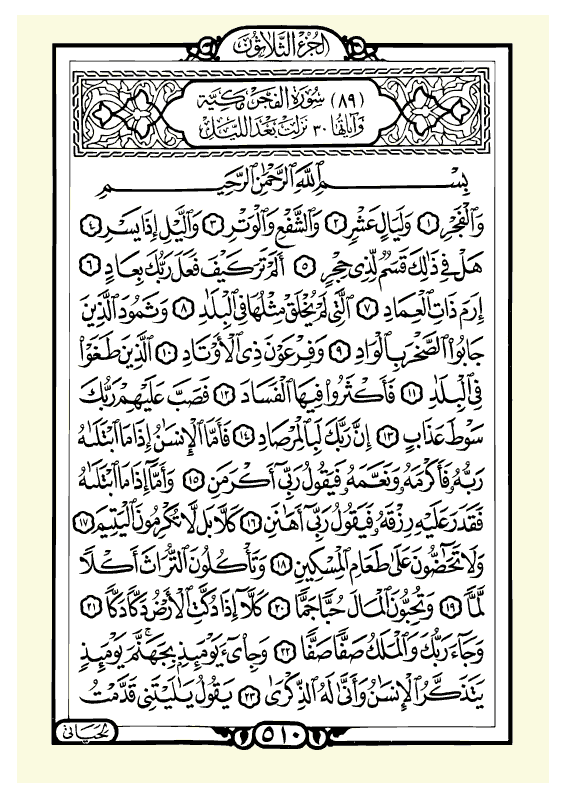 الجزء الثلاثون
(٨٩) سورة الفجر مكية
وآياتها ٣٠ نزلت بعد الليل
بسم الله الرحمن الرحيم
وَالْفَجْرِ ١ وَلَيَالٍ عَشْرٍ ٢ وَالشَّفْعِ وَالْوَتْرِ ٣ وَالَّيْلِ إِذَا يَسْرِ ٤
هَلْ فِي ذَٰلِكَ قَسَمٌ لِّذِي حِجْرٍ ٥ أَلَمْ تَرَ كَيْفَ فَعَلَ رَبُّكَ بِعَادٍ ٦
إِرَمَ ذَاتِ الْعِمَادِ ٧ الَّتِي لَمْ يُخْلَقْ مِثْلُهَا فِي الْبِلَادِ ٨ وَثَمُودَ الَّذِينَ
جَابُوا الصَّخْرَ بِالْوَادِ ٩ وَفِرْعَوْنَ ذِي الْأَوْتَادِ ١٠ الَّذِينَ طَغَوْا
فِي الْبِلَادِ ١١ فَأَكْثَرُوا فِيهَا الْفَسَادَ ١٢ فَصَبَّ عَلَيْهِمْ رَبُّكَ
سَوْطَ عَذَابٍ ١٣ إِنَّ رَبَّكَ لَبِالْمِرْصَادِ ١٤ فَأَمَّا الْإِنسَٰنُ إِذَا مَا ابْتَلَىٰهُ
رَبُّهُ فَأَكْرَمَهُ وَنَعَّمَهُ فَيَقُولُ رَبِّي أَكْرَمَنِ ١٥ وَأَمَّا إِذَا مَا ابْتَلَىٰهُ
فَقَدَرَ عَلَيْهِ رِزْقَهُ فَيَقُولُ رَبِّي أَهَٰنَنِ ١٦ كَلَّا بَل لَّا تُكْرِمُونَ الْيَتِيمَ ١٧
وَلَا تَحَٰضُّونَ عَلَىٰ طَعَامِ الْمِسْكِينِ ١٨ وَتَأْكُلُونَ التُّرَاثَ أَكْلًا
لَّمًّا ١٩ وَتُحِبُّونَ الْمَالَ حُبًّا جَمًّا ٢٠ كَلَّا إِذَا دُكَّتِ الْأَرْضُ دَكًّا دَكًّا ٢١
وَجَاءَ رَبُّكَ وَالْمَلَكُ صَفًّا صَفًّا ٢٢ وَجِايءَ يَوْمَئِذٍ بِجَهَنَّمَ يَوْمَئِذٍ
يَتَذَكَّرُ الْإِنسَٰنُ وَأَنَّىٰ لَهُ الذِّكْرَىٰ ٢٣ يَقُولُ يَٰلَيْتَنِي قَدَّمْتُ
٥١٠
لحياتي